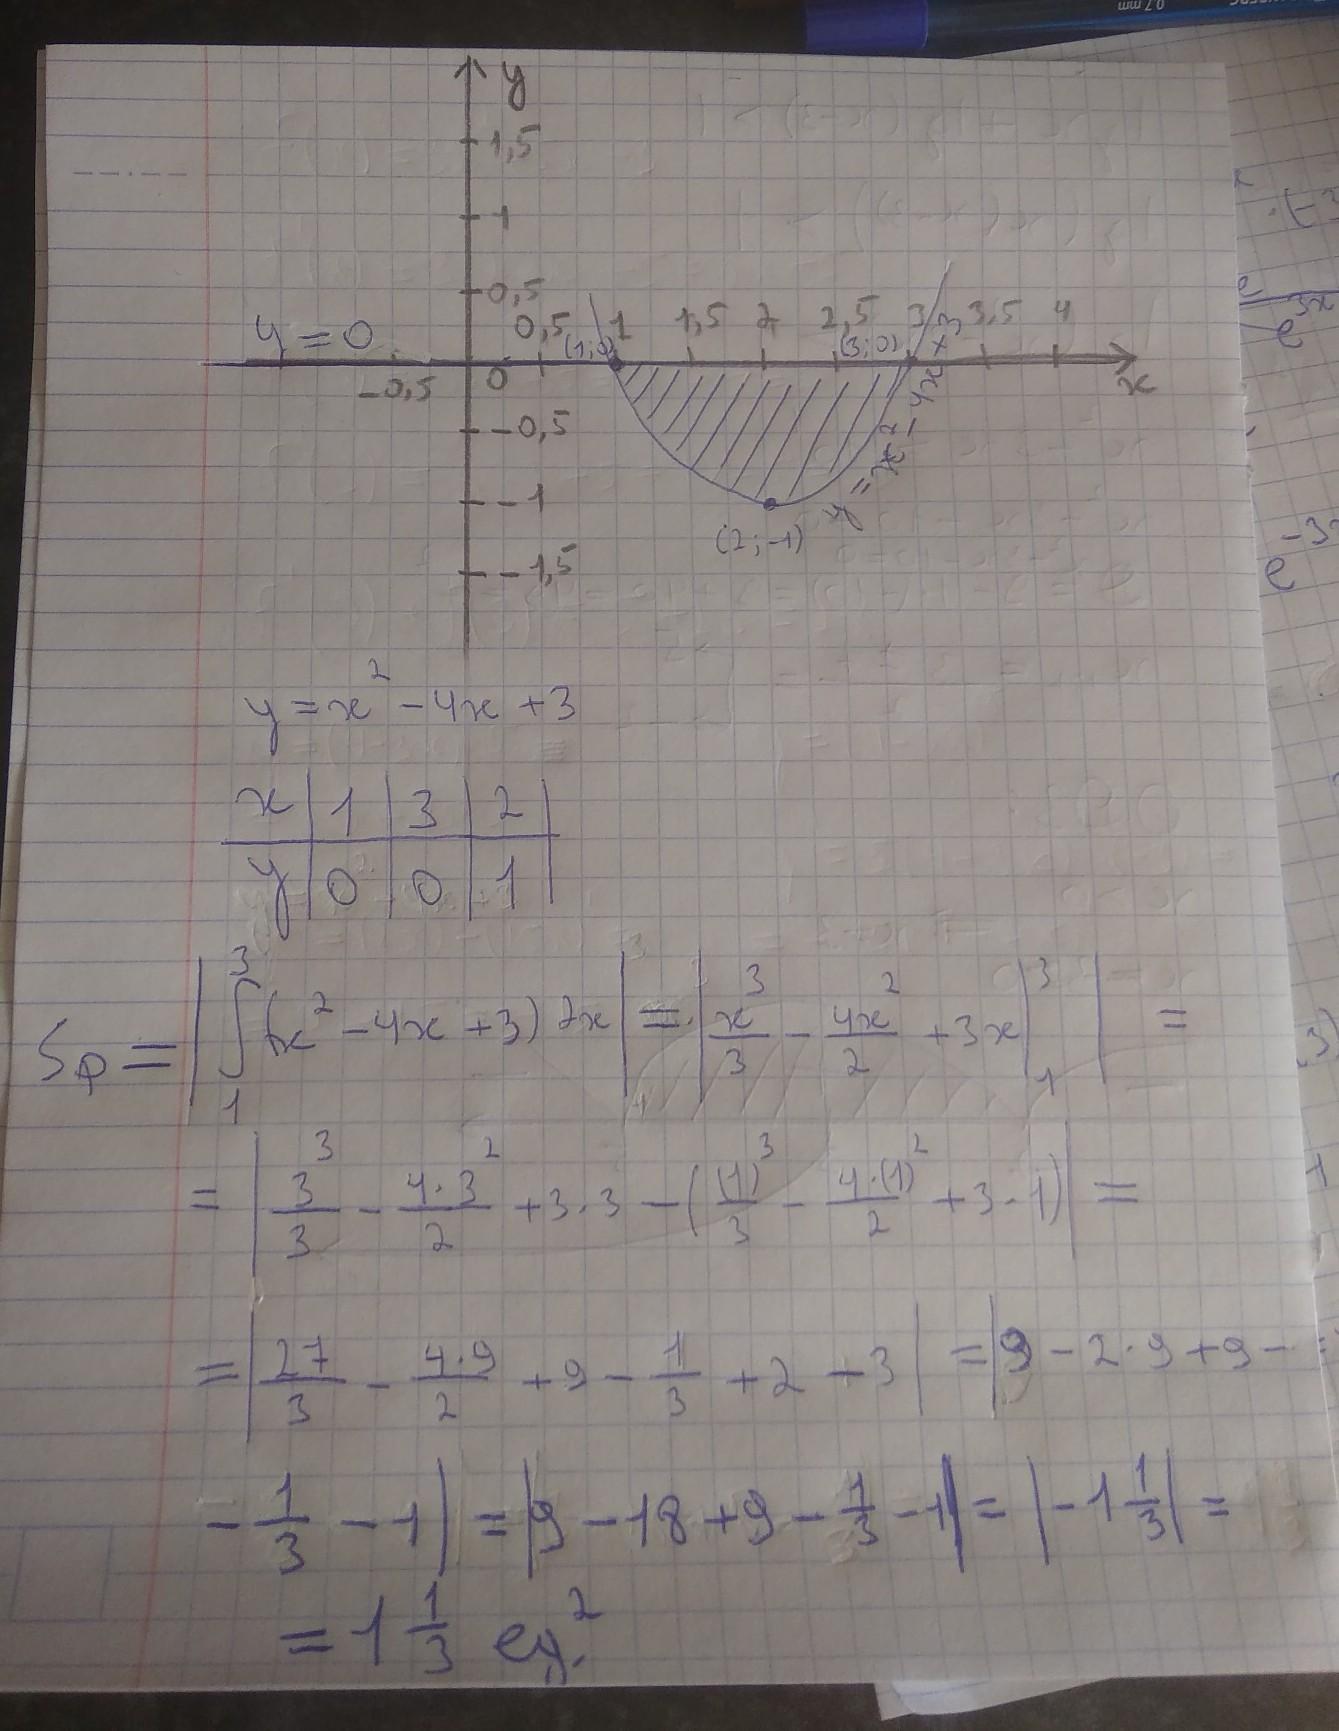 0,7 mm
y
1,5
1
0,5
y = 0
0,5 (1;0) 1 1,5 2 2,5 (3;0) 3 3,5 4
-0,5 0 x
-0,5
-1
-1,5
(2;-1)
y = x² - 4x + 3
y = x² - 4x + 3
x | 1 | 3 | 2 |
y | 0 | 0 | 1 |
Sф = | ∫₁³ (x² - 4x + 3) 2x |₁³ = | x³/3 - 4x²/2 + 3x |₁³ | =
= | 3³/3 - 4·3²/2 + 3·3 - ((1)³/3 - 4·(1)²/2 + 3·1) | =
= | 27/3 - 4·9/2 + 9 - 1/3 + 2 + 3 | = | 9 - 2·9 + 9 -
- 1/3 - 1 | = | 9 - 18 + 9 - 1/3 - 1 | = | -1 1/3 | =
= 1 1/3 ед.²
e^3x
e^-3